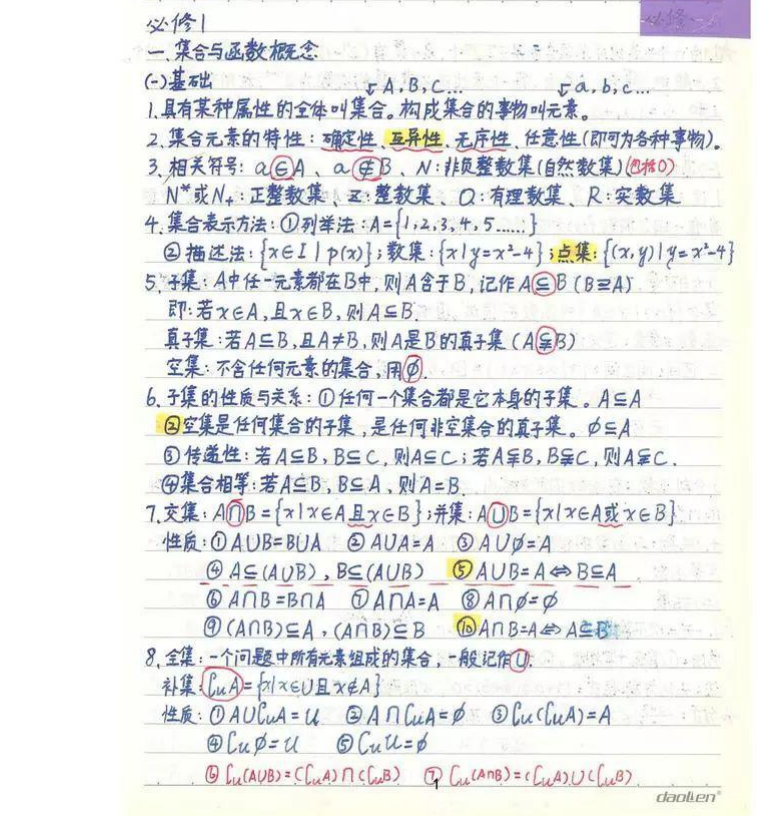 必修1
必修一
一、集合与函数概念
(一)基础
↙A,B,C... ↙a,b,c...
1.具有某种属性的全体叫集合。构成集合的事物叫元素。
2.集合元素的特性:确定性、互异性、无序性、任意性(即可为各种事物)。
3.相关符号:a∈A、a∉B、N:非负整数集(自然数集)(包括0)
N*或N₊:正整数集、Z:整数集、Q:有理数集、R:实数集
4.集合表示方法:①列举法:A={1,2,3,4,5......}
②描述法:{x∈I|p(x)};数集:{x|y=x²-4};点集:{(x,y)|y=x²-4}
5.子集:A中任一元素都在B中,则A含于B,记作A⊆B(B⊇A)
即:若x∈A,且x∈B,则A⊆B.
真子集:若A⊆B,且A≠B,则A是B的真子集(A⫋B)
空集:不含任何元素的集合,用∅.
6.子集的性质与关系:①任何一个集合都是它本身的子集。A⊆A
②空集是任何集合的子集,是任何非空集合的真子集。∅⊆A
③传递性:若A⊆B,B⊆C,则A⊆C;若A⫋B,B⫋C,则A⫋C.
④集合相等:若A⊆B,B⊆A,则A=B.
7.交集:A∩B={x|x∈A且x∈B};并集:A∪B={x|x∈A或x∈B}
性质:①A∪B=B∪A ②A∪A=A ③A∪∅=A
④A⊆(A∪B),B⊆(A∪B) ⑤A∪B=A⇔B⊆A
⑥A∩B=B∩A ⑦A∩A=A ⑧A∩∅=∅
⑨(A∩B)⊆A,(A∩B)⊆B ⑩A∩B=A⇔A⊆B
8.全集:一个问题中所有元素组成的集合,一般记作U.
补集:∁uA={x|x∈U且x∉A}
性质:①A∪∁uA=U ②A∩∁uA=∅ ③∁u(∁uA)=A
④∁u∅=U ⑤∁uU=∅
⑥∁u(A∪B)=(∁uA)∩(∁uB) ⑦∁u(A∩B)=(∁uA)∪(∁uB)
1
daolien®